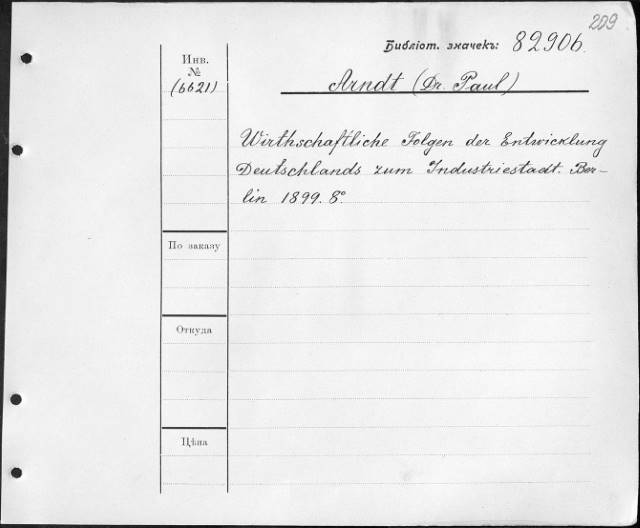 209
Библіот. значекъ: 82906.
Инв.
№
(6621)
Arndt (Dr. Paul)
Wirthschaftliche Folgen der Entwicklung
Deutschlands zum Industriestadt. Ber-
lin 1899. 8°.
По заказу
Откуда
Цѣна